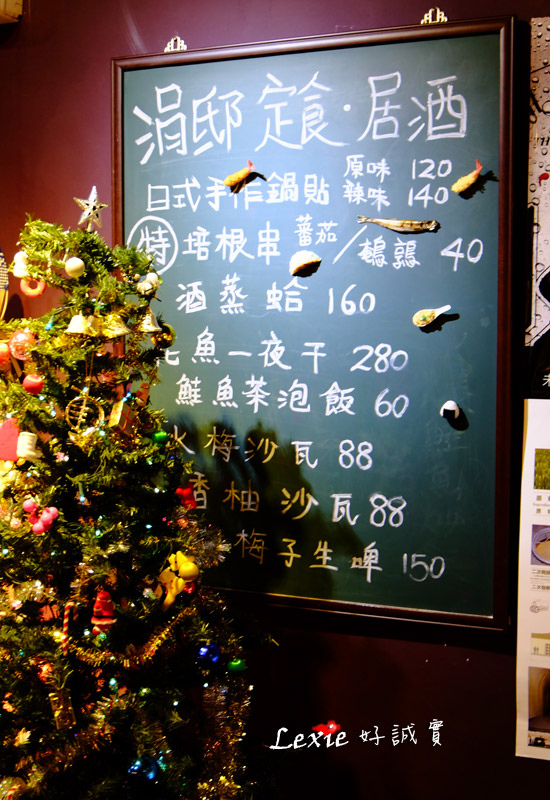 涓邸 定食·居酒
日式手作鍋貼 原味 120
辣味 140
特 培根串 蕃茄/鵪鶉 40
酒蒸蛤 160
魚一夜干 280
鮭魚茶泡飯 60
梅沙瓦 88
香柚沙瓦 88
梅子生啤 150
Lexie 好誠實